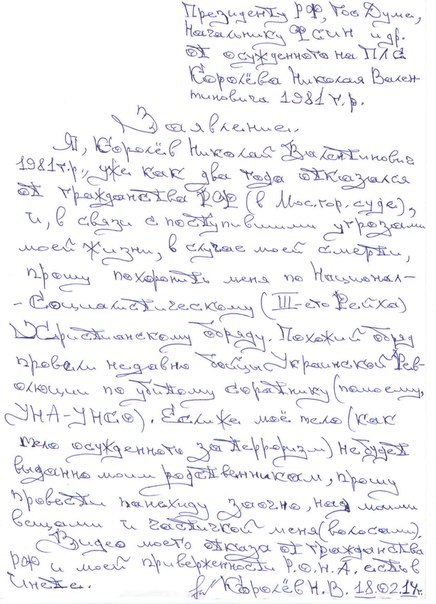 Президенту РФ, Гос Думе,
Начальнику ФСИН и др.
от осужденного на ПЛС
Королёва Николая Вален-
тиновича 1981 г.р.
Заявление.
Я, Королёв Николай Валентинович
1981 г.р., уже как два года отказался
от гражданства РФ (в Мосгор. суде),
и, в связи с поступившими угрозами
моей жизни, в случае моей смерти,
прошу похоронить меня по Национал-
- Социалистическому (III-его Рейха)
Христианскому обряду. Похожий обряд
провели недавно бойцы Украинской Рев-
олюции по убитому соратнику (помоему,
УНА-УНСО). Если же моё тело (как
тело осужденного за терроризм) не будет
выданно моим родственникам, прошу
провести панахиду заочно, над моими
вещами и частичкой меня (волосами).
Видео моего отказа от гражданства
РФ и моей приверженности Р.О.Н.А. есть в
Инете.
Королёв Н.В. 18.02.14г.